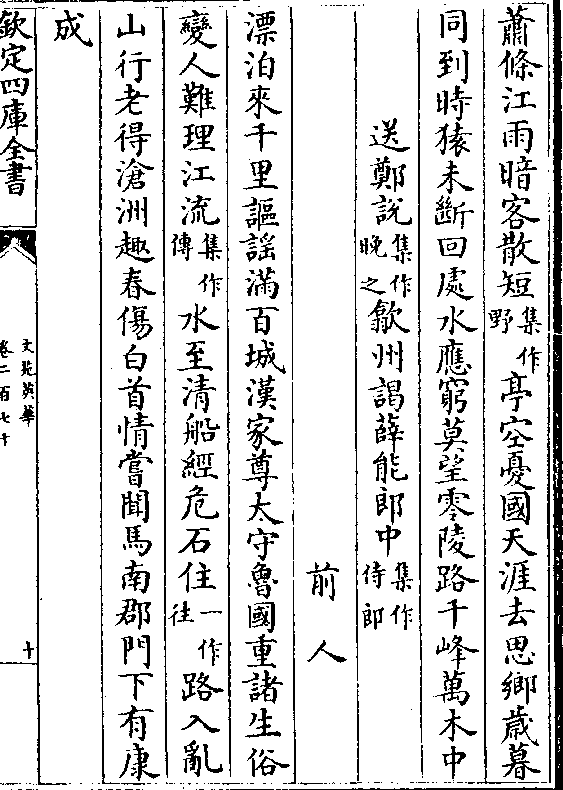 蕭條江雨暗客散短集作野亭空憂國天涯去思鄉歲暮
同到時猿未斷回處水應窮莫望零陵路千峰萬木中
送鄭說集作晚之歙州謁薛能郎中集作侍郎
前人
漂泊來千里謳謠滿百城漢家尊太守魯國重諸生俗
變人難理江流集作傳水至清船經危石住一作往路入亂
山行老得滄洲趣春傷白首情嘗聞馬南郡門下有康
成
欽定四庫全書
文苑英華
卷二百七十
十